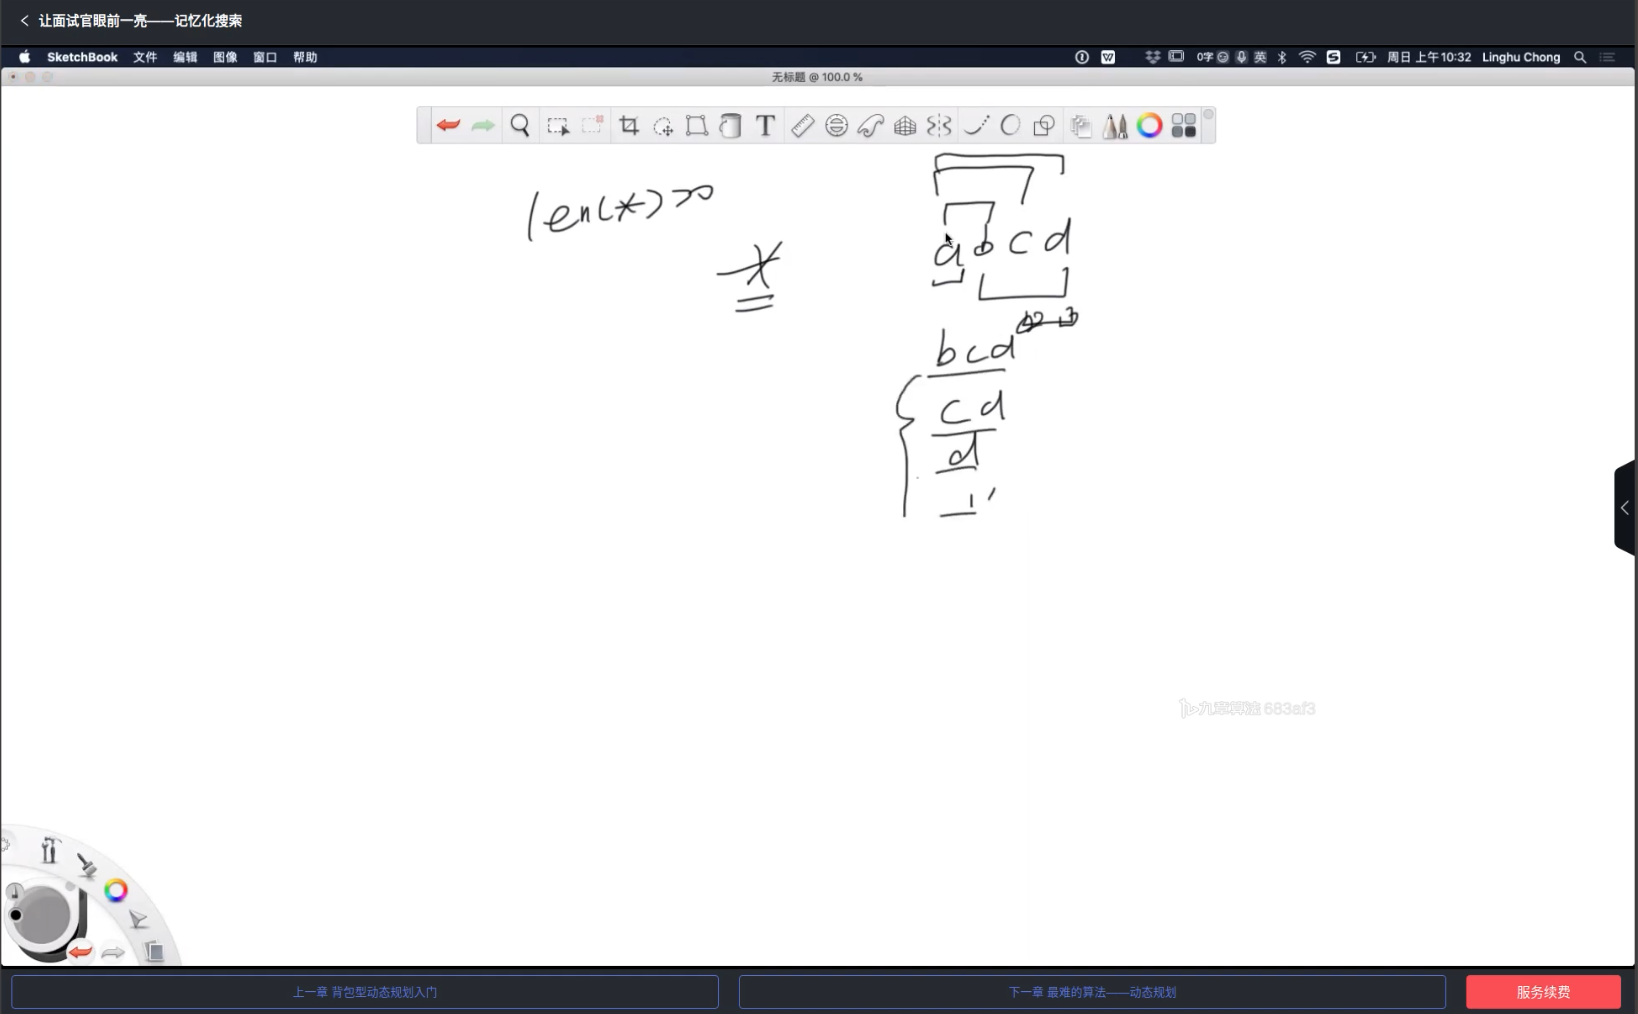 让面试官眼前一亮——记忆化搜索
SketchBook 文件 编辑 图像 窗口 帮助
0字 英 周日 上午10:32 Linghu Chong
无标题 @ 100.0 %
len(*)>0
a b c d
b c d
c d
d
九章算法 683af3
上一章 背包型动态规划入门
下一章 最难的算法——动态规划
服务续费